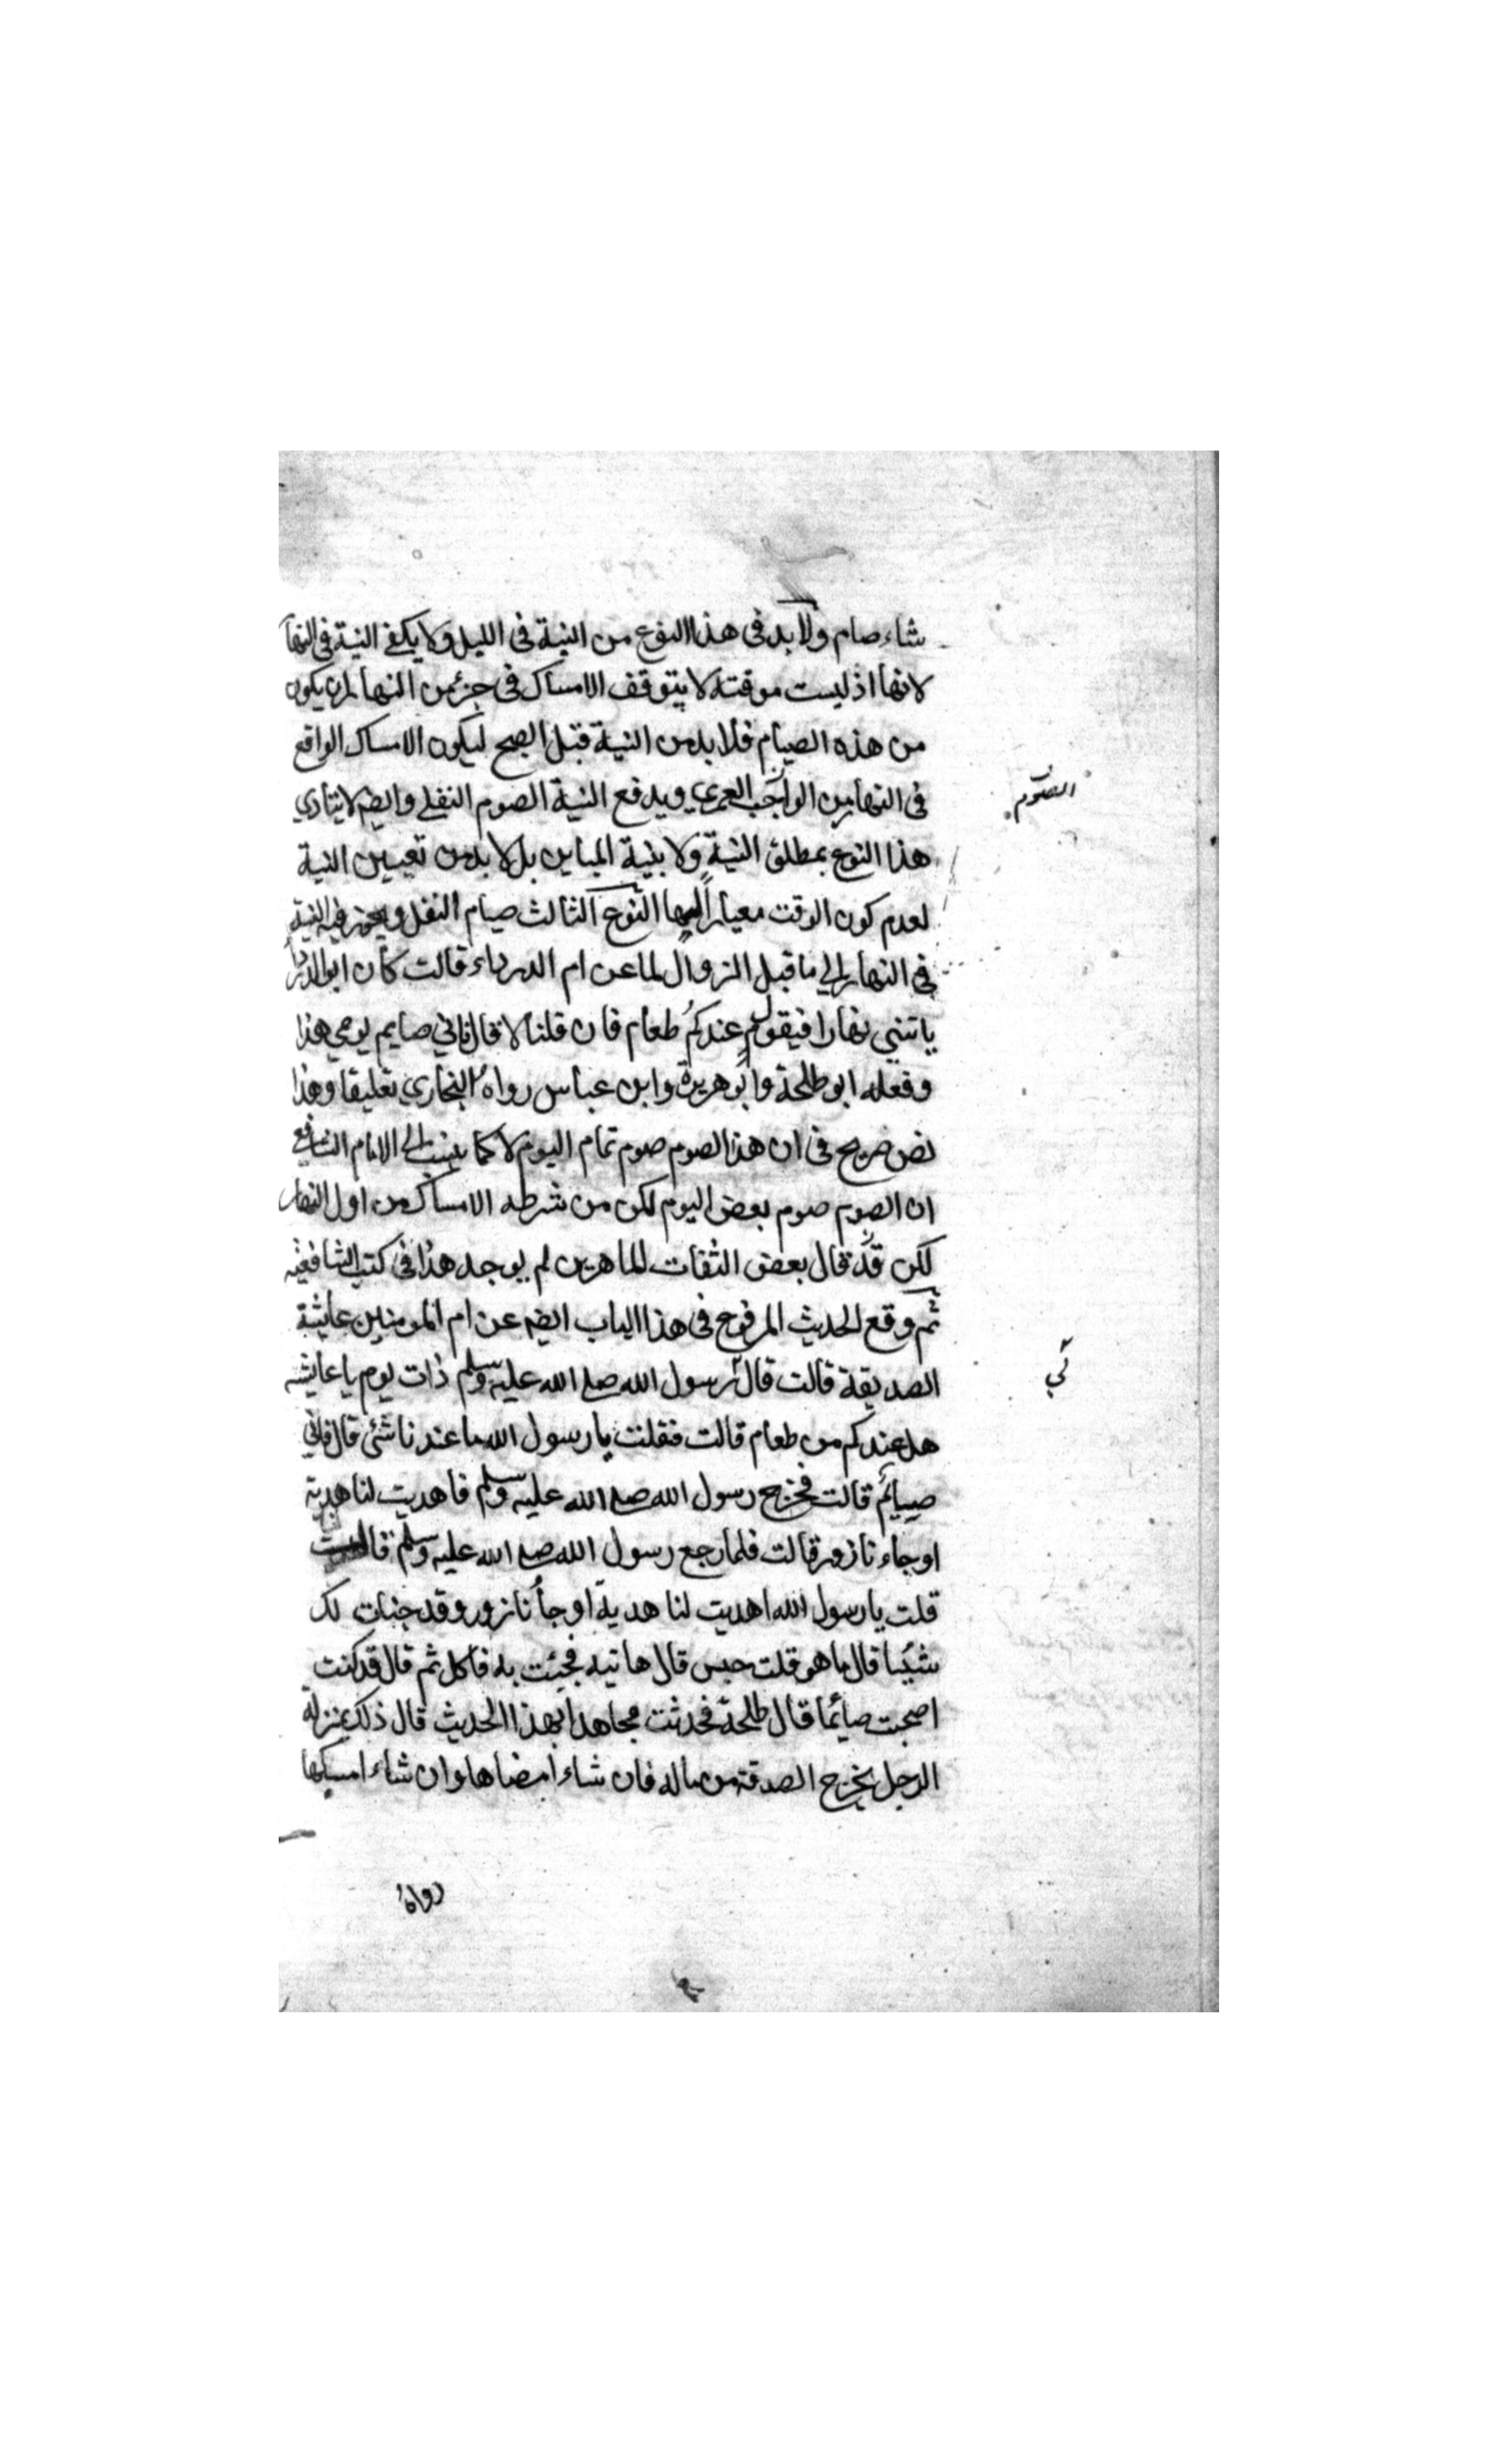 شاء صام ولا بد فى هذا النوع من النية فى الليل ولا يكفى النية فى النها
لانها اذ ليست موقتة لا يتوقف الامساك فى جزء من النهار ان يكون
من هذه الصيام فلا بد من النية قبل الصبح ليكون الامساك الواقع
فى النهار من الواجب العمرى ويدفع النية الصوم النفلى وايضا لا يتادي
الصوم
هذا النوع بمطلق النية ولا بنية المباين بل لا بد من تعيين النية
لعدم كون الوقت معيارا لها النوع الثالث صيام النفل ويجوز فيه النية
فى النهار الى ما قبل الزوال لما عن ام الدرداء قالت كان ابو الدردا
ياتيني نهارا فيقول عندكم طعام فان قلنا لا قال فاني صايم يومي هذا
وفعله ابو طلحة وابو هريرة وابن عباس رواه البخاري تعليقا وهذا
نص صريح فى ان هذا الصوم صوم تمام اليوم لا كما ينسب الى الامام الشافعي
ان الصوم صوم بعض اليوم لكن من شرطه الامساك من اول النهار
لكن قد قال بعض الثقات الماهرين لم يوجد هذا فى كتب الشافعيه
ثم وقع الحديث المرفوع فى هذا الباب ايضا عن ام المومنين عايشة
الصديقة قالت قال رسول الله صلى الله عليه وسلم ذات يوم يا عايشه
لي
هل عندكم من طعام قالت فقلت يا رسول الله ما عندنا شئ قال فاني
صيائم قالت فخرج رسول الله صلى الله عليه وسلم فاهديت لنا هدية
او جاءنا زور قالت فلما رجع رسول الله صلى الله عليه وسلم قالت
قلت يا رسول الله اهديت لنا هدية او جاءنا زور وقد خبات لك
شيئا قال ما هو قلت حيس قال هاتيه فجئت به فاكل ثم قال قد كنت
اصبحت صائما قال طلحة فحدثت مجاهدا بهذا الحديث قال ذلك بمنزلة
الرجل يخرج الصدقة من ماله فان شاء امضاها وان شاء امسكها
رواه